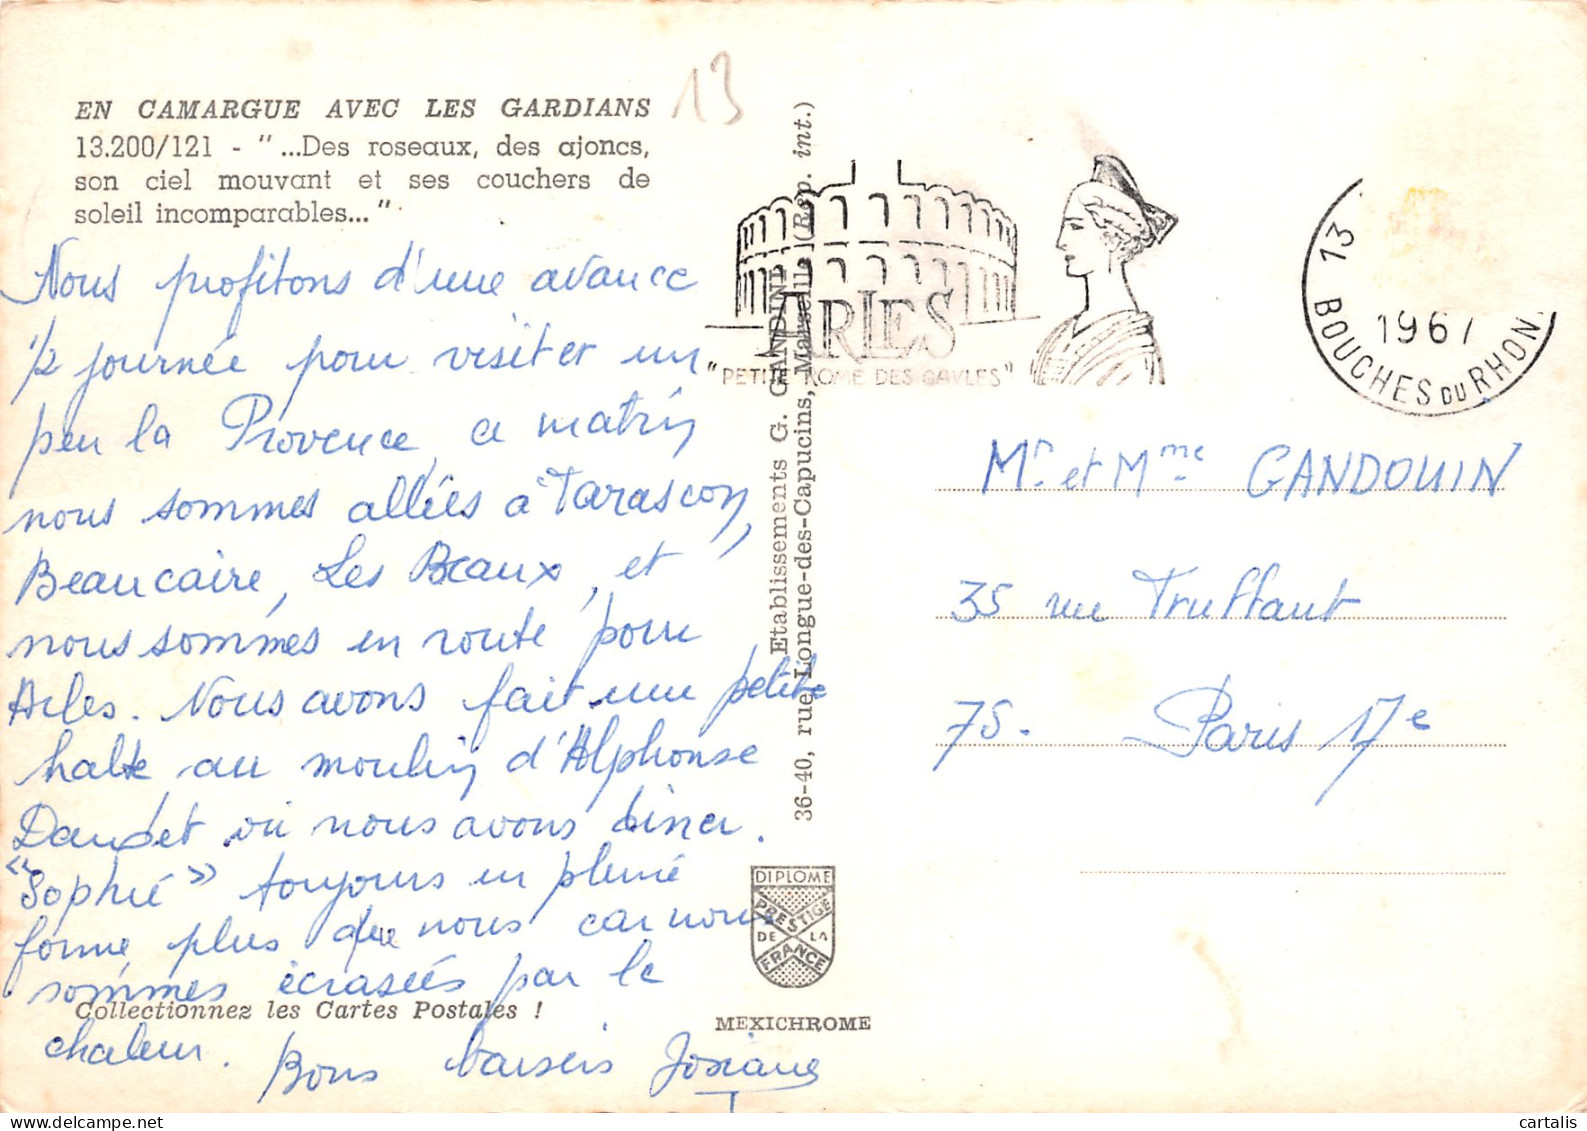 13
EN CAMARGUE AVEC LES GARDIANS
13.200/121 - "...Des roseaux, des ajoncs,
son ciel mouvant et ses couchers de
soleil incomparables..."
Nous profitons d'une avance
1/2 journée pour visiter un
peu la Provence, ce matin
nous sommes allées à Tarascon,
Beaucaire, Les Beaux, et
nous sommes en route pour
Arles. Nous avons fait une petite
halte au moulin d'Alphonse
Daudet où nous avons diner.
"Sophie" toujours en pleine
forme, plus que nous car nous
sommes écrasées par la
chaleur. Bons baisers Josiane
Collectionnez les Cartes Postales !
Etablissements G. GANDINI
36-40, rue Longue-des-Capucins, Marseille (Rep. int.)
DIPLOME
PRESTIGE
DE LA
FRANCE
MEXICHROME
ARLES
"PETITE ROME DES GAVLES"
13
1967
BOUCHES DU RHON.
Mr et Mme GANDOUIN
35 rue Truffaut
75. Paris 17e
cartalis